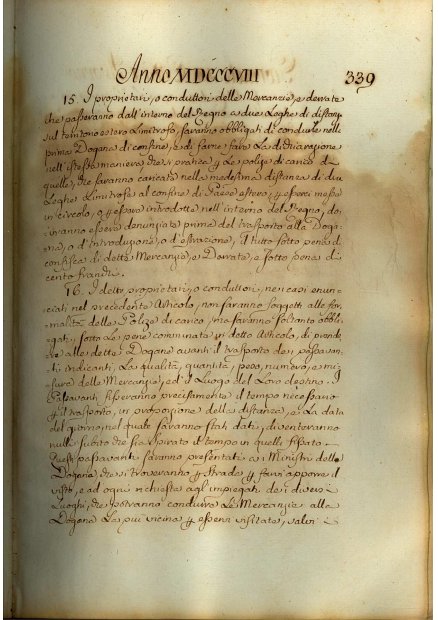 Anno MDCCCVIII 339
15. I proprietarj, o conduttori delle Mercanzie, e derrate
che passeranno dall'interno del Regno a due Leghe di distanza
sul territorio estero Limitrofo, saranno obbligati di condurle nella
prima Dogana di confine, e di farne fare la dichiarazione
nell'istessa maniera che si pratica
quelle, che saranno caricate nella medesima distanza di due
Leghe Limitrofe al confine di Paese estero, esserci messe
in circolo, o essere introdotte nell'interno del Regno, do-
vranno essere denunziate prima del trasporto alla Doga-
na, o d'introduzione, o d'estrazione, il tutto sotto pena di
confisca di dette Mercanzie, e Derrate, e sotto pena di
cento franchi.
16. I detti proprietarj, o conduttori, nei casi enun-
ciati nel precedente Articolo, non saranno soggetti alle for-
malità delle Polize di carico, ma saranno soltanto obbli-
gati, sotto le pene comminate in detto Articolo, di prende-
re alle dette Dogane avanti il trasporto dei passavan-
ti indicanti, La qualità, quantità, peso, numero, e mi-
sura delle Mercanzie, ed il Luogo del Loro destino. I
Passavanti fisseranno precisamente il tempo necessario
il trasporto, in proporzione della distanza, e La data
del giorno, nel quale saranno stati dati, diventeranno
nulli subito che sia spirato il tempo in quelli fissato.
Questi passavanti saranno presentati ai Ministri delle
Dogane, che si troveranno Strada farvi apporre il
visto, e ad ogni richiesta agl'impiegati dei diversi
Luoghi, che potranno condurre Le Mercanzie alla
Dogana La più vicina essere visitate, salvi